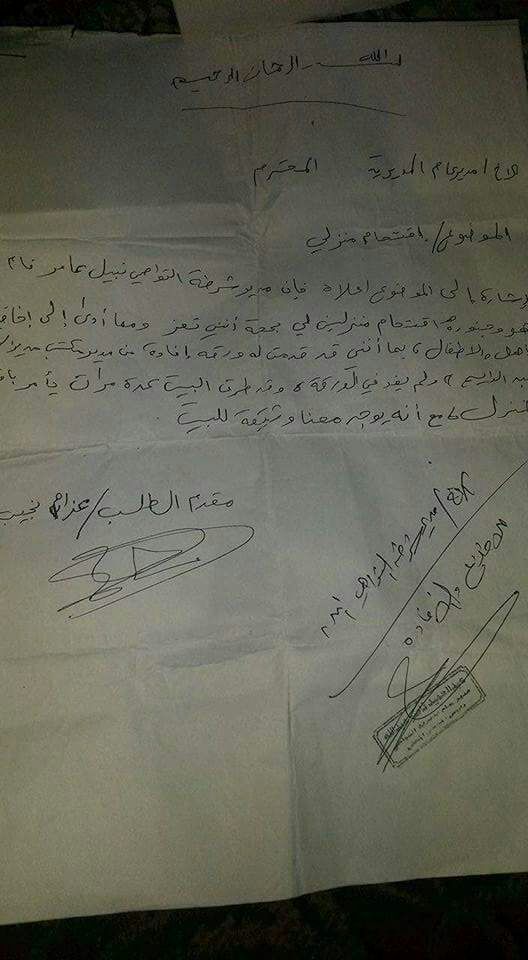 الله الرحمان الرحيم
الاخ / مدير عام المديرية المحترم
الموضوع / اقتحام منزلي
إشارة إلى الموضوع اعلاه فإن مدير شرطة التواهي نبيل عامر قام
هو وجنوده اقتحام منزلي لي بحجة أنني تعز ومما أدى إلى إخافة
أهل والاطفال ، بما أنني قد قدمت له ورقه إفادة من مدير مكتب مدير
ولم يفد في الورقة ، وقد طرق البيت عدة مرات يأمر
المنزل مع أنه يوجد معنا وثيقة للبيت
مقدم الطلب / عزام نجيب
الاخ / مدير شرطة التواهي المحترم
للاطلاع والافاده